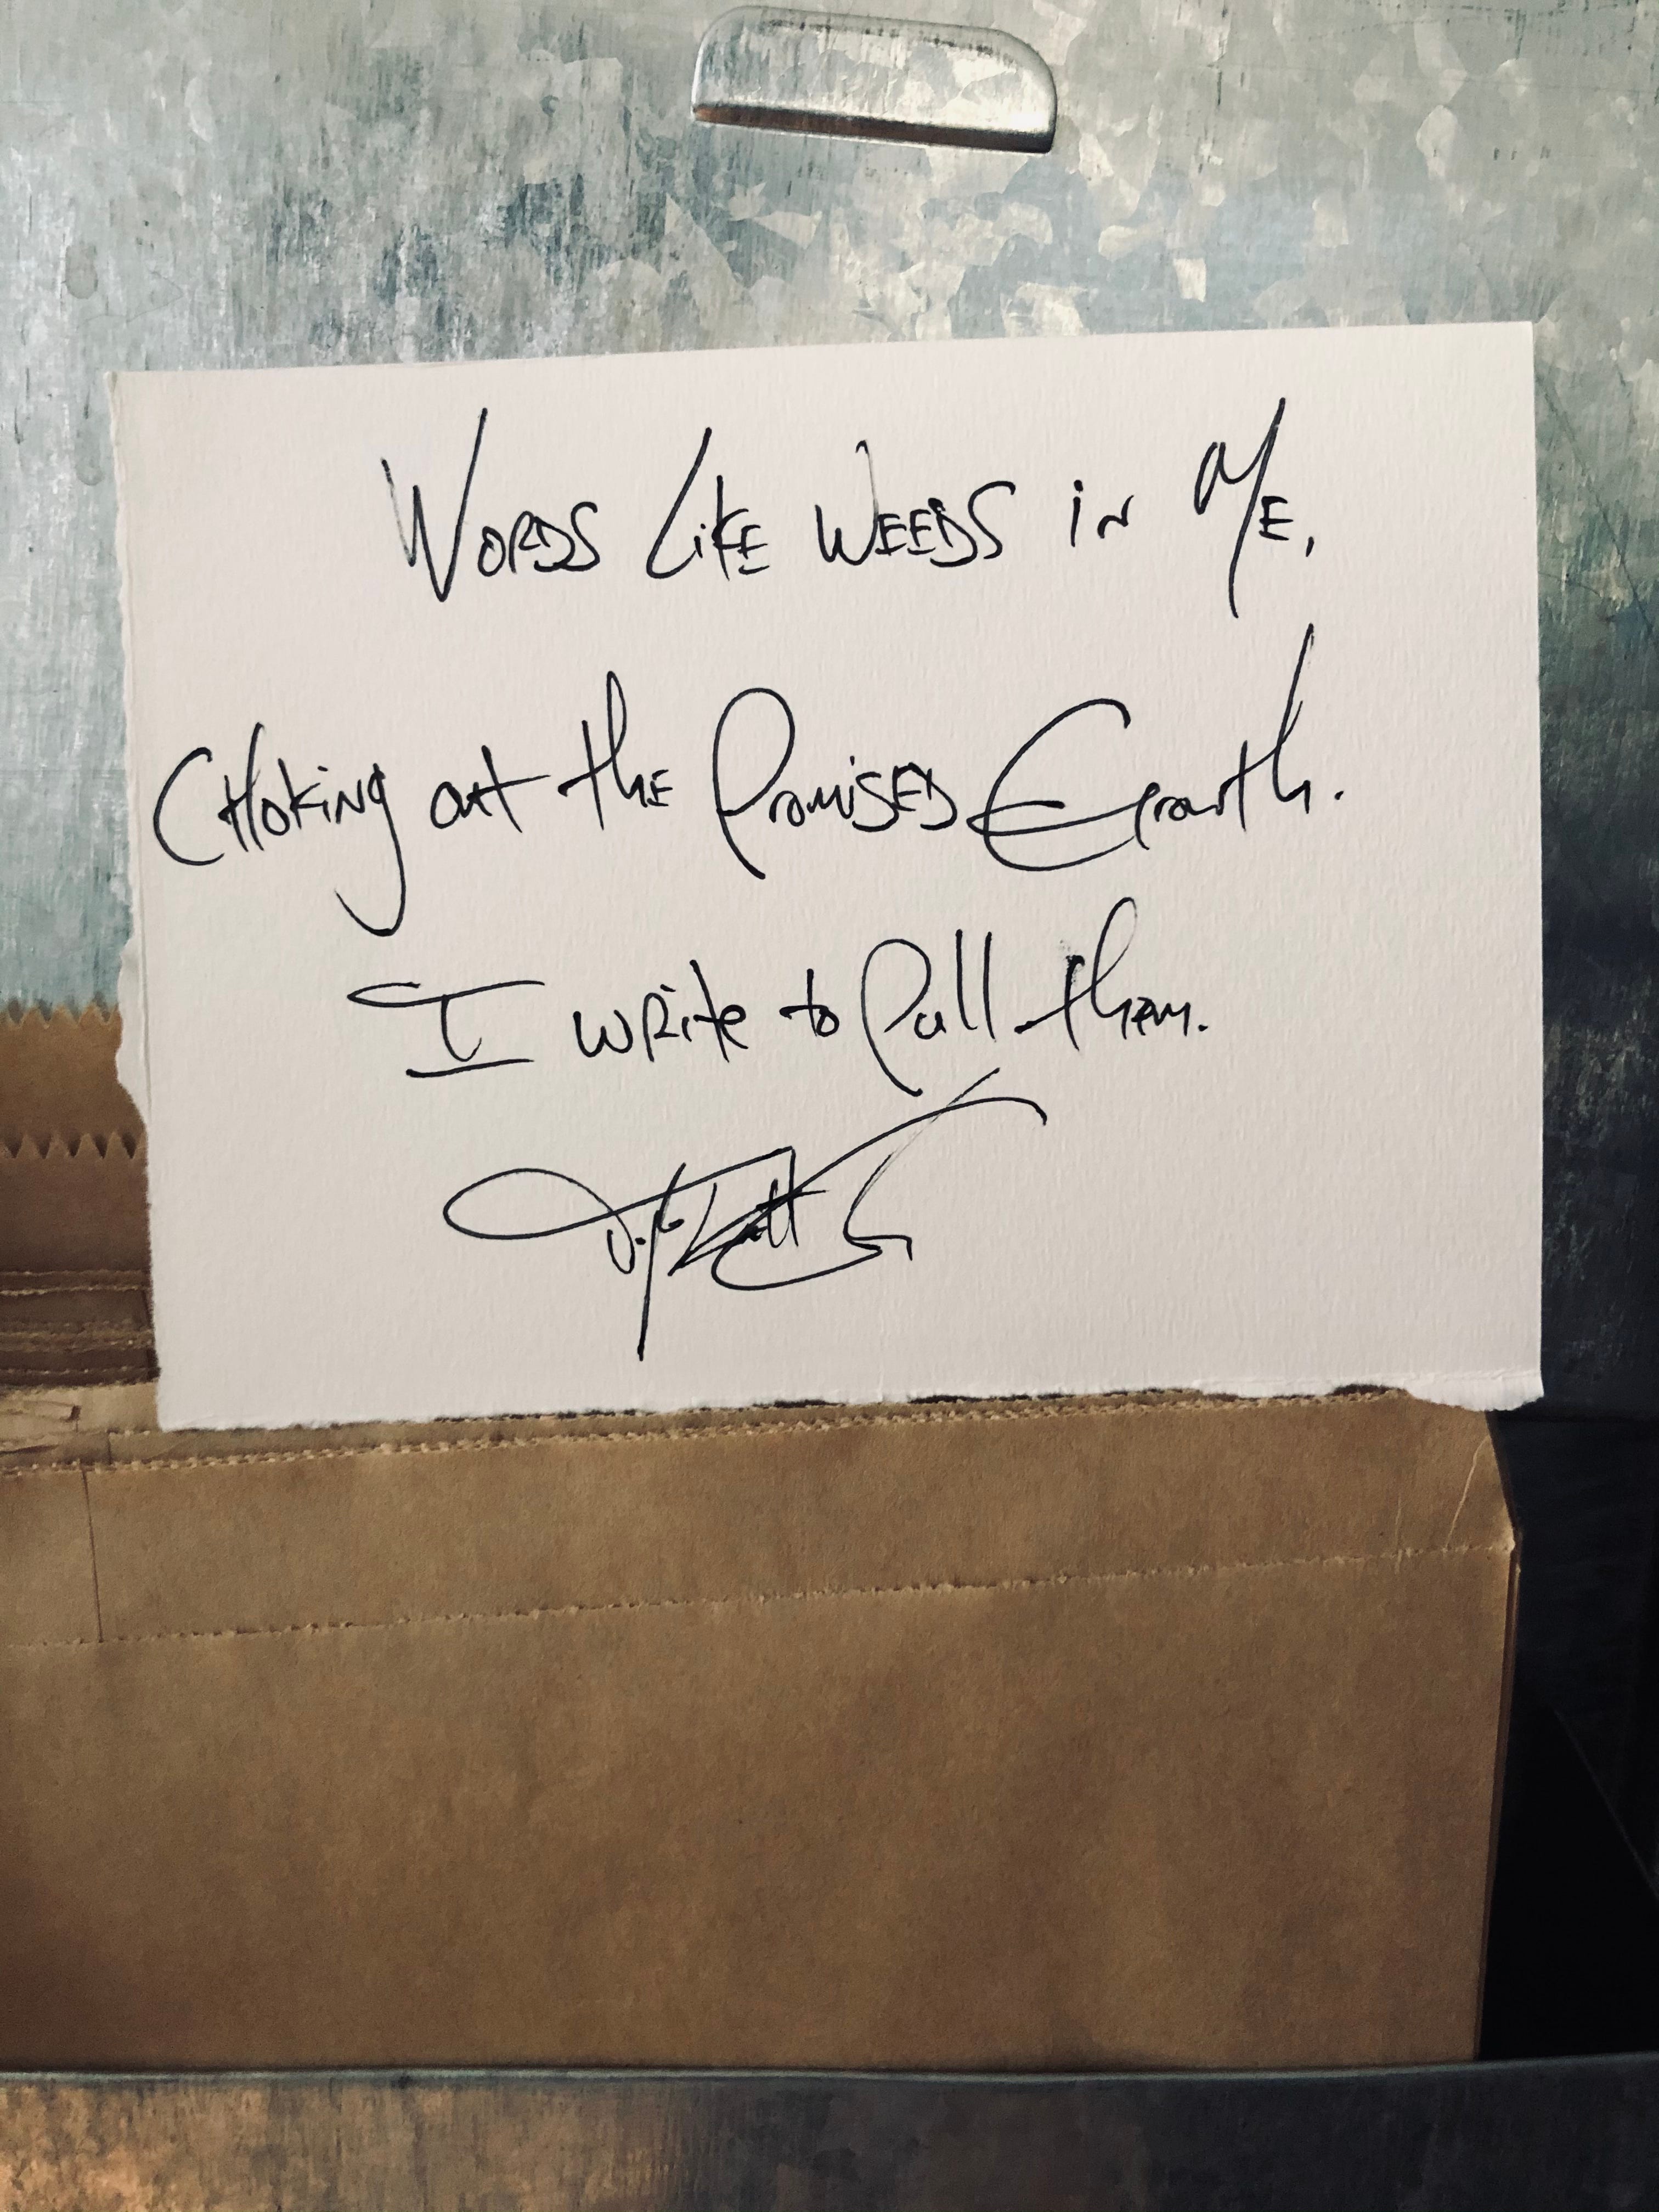 Words Like Weeds in Me,
Choking out the Promised Growth.
I write to Pull them.